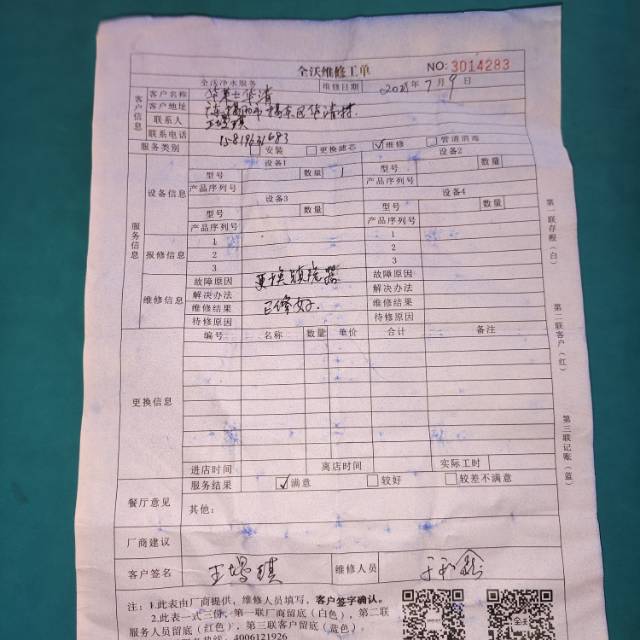 全沃维修工单
NO: 3014283
全沃净水服务 维修日期 7月9日
客户信息
客户名称
客户地址
联系人
联系电话
服务类别 安装 更换滤芯 ✓维修 管道消毒
服务信息
设备信息
设备1 数量 1 设备2
型号 型号 数量
产品序列号 产品序列号
设备3 设备4
型号 数量 型号 数量
产品序列号 产品序列号
报修信息
1 1
2 2
3 3
维修信息
故障原因 故障原因
解决办法 解决办法
维修结果 已修好. 维修结果
待修原因 待修原因
更换信息
编号 名称 数量 单价 合计 备注
进店时间 离店时间 实际工时
餐厅意见
服务结果 ✓满意 较好 较差不满意
其他:
厂商建议
客户签名 维修人员
注: 1.此表由厂商提供,维修人员填写,客户签字确认。
2.此表一式三份,第一联厂商留底(白色),第二联
服务人员留底(红色),第三联客户留底(蓝色)。
4006121926
第一联存根(白)
第二联客户(红)
第三联记账(蓝)